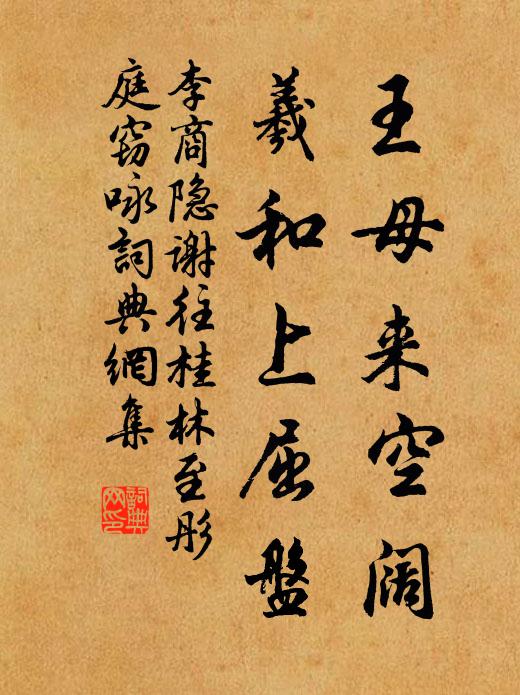 王母来空阔
羲和上屈盤
李商隐谢往桂林至彤
庭窈咏詞典網集
詞典
网印